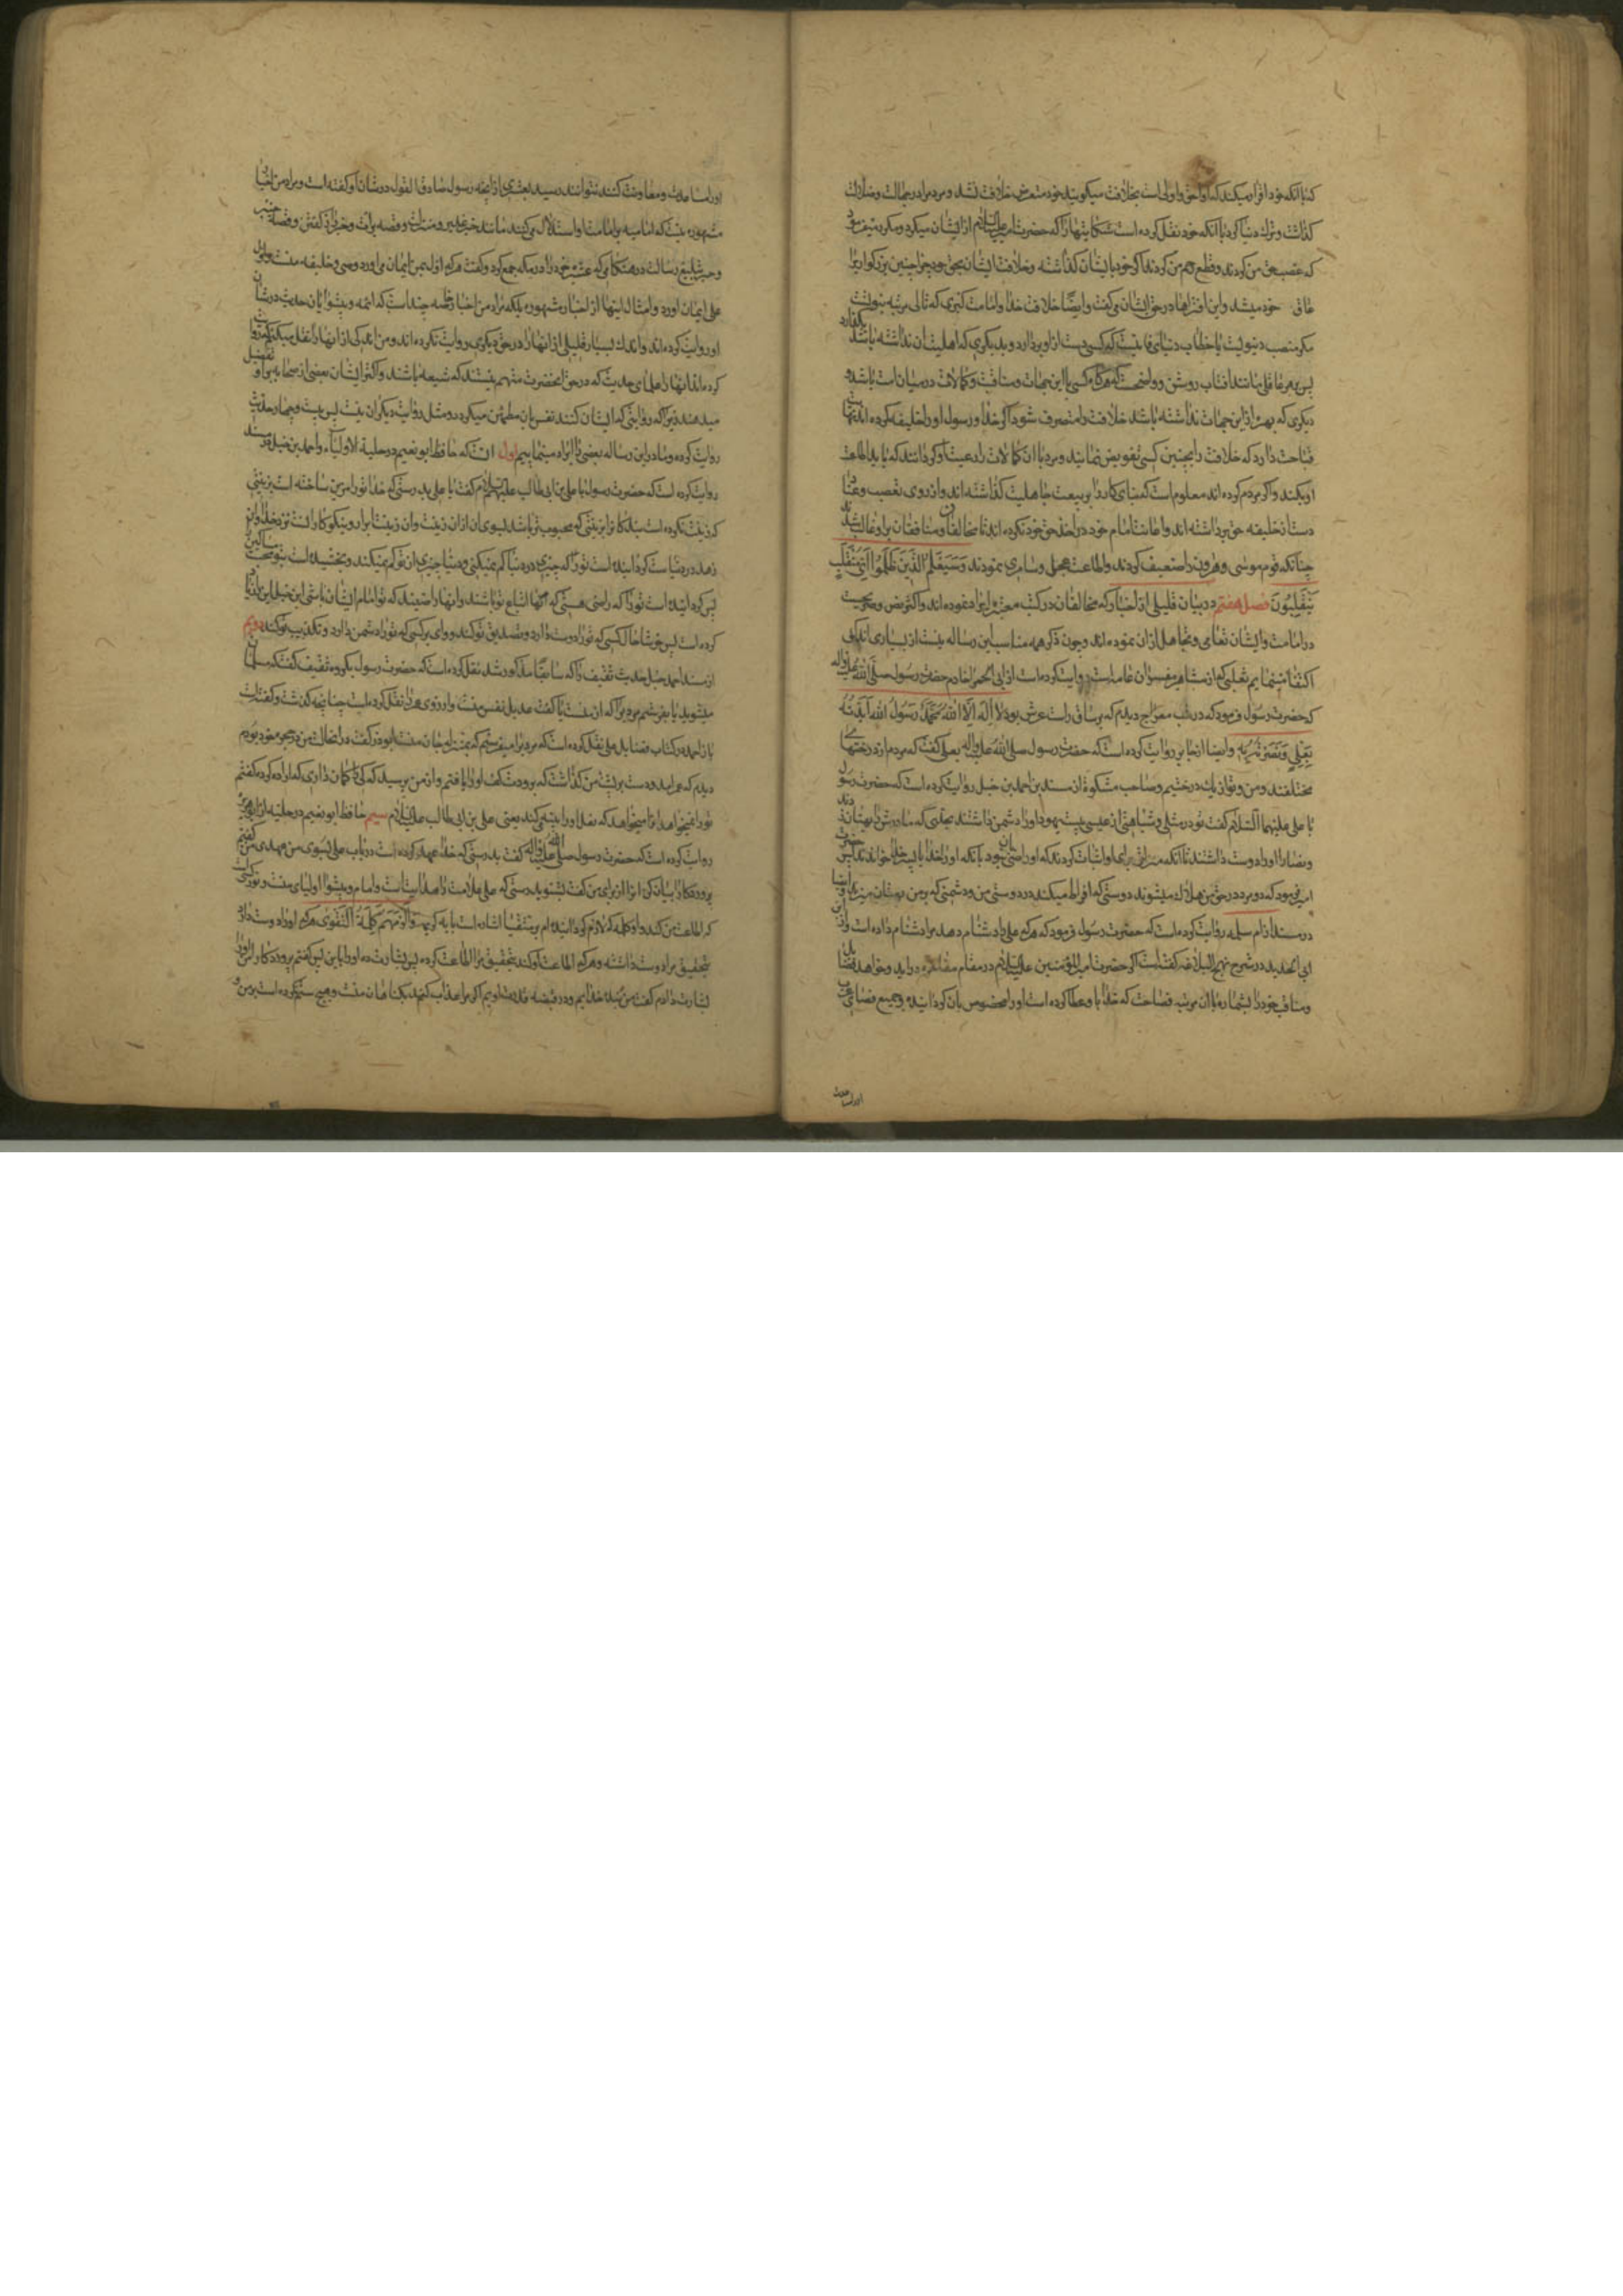 که با آنکه خود اقرار میکند که او احق و اولی است بخلافت میگویند خود متعرض خلافت نشد و مردم را در جهالت و ضلالت
گذاشت و ترک دنیا کرد با آنکه خود نقل کرده است شکایتها را که حضرت امیر علیه السلام از ایشان میکرد و مکرر میفرمود
که غصب حق من کردند و قطع رحم من کردند اگر خود با ایشان گذاشته و خلافت ایشان بحق بود چرا چنین بزرگواری را
عاق خود میشد و این افتراها در حق ایشان میگفت و ایضا خلافت خدا و امامت کبری که تالی مرتبه نبوت است
مگر منصب دنیویست یا خطاب دنیای فانیست که کسی دست از او بردارد و بدیگری که اهلیت آن نداشته باشد بگذارد
پس بر هر عاقلی مانند آفتاب روشن و واضحست که هرگاه کسی با این جهات و مناقب و کمالات در میان امت باشد و
دیگری که بهره از این جهات نداشته باشد خلافت را متصرف شود اگر خدا و رسول او را خلیفه کرده اند نهایت
قباحت دارد که خلافت را بچنین کسی تفویض نمایند و مرد با آن کمالات را رعیت او گردانند که باید اطاعت
او بکند و اگر مردم کرده اند معلوم است که بنای کار را بر بیعت جاهلیت گذاشته اند و از روی تعصب و عناد
دست از خلیفه حق برداشته اند و اعانت امام خود در اخذ حق خود نکرده اند تا مخالفان و منافقان بر او غالب شدند
چنانکه قوم موسی و هرون را ضعیف کردند و اطاعت عجل و سامری نمودند وَسَيَعْلَمُ الَّذِينَ ظَلَمُوا أَيَّ مُنْقَلَبٍ
يَنْقَلِبُونَ فصل هفتم در بیان قلیلی از اخباری که مخالفان در کتب معتبره ایراد نموده اند و اکثر نص صریحست
در امامت و ایشان تعامی و تجاهل از آن نموده اند و چون ذکر همه مناسب این رساله نیست از بسیاری اندکی
اکتفا مینمایم ثعلبی که از مشاهیر مفسران عامه است روایت کرده است از ابی الحمرا خادم حضرت رسول صلی الله علیه و آله
که حضرت رسول فرمود که در شب معراج دیدم که بر ساق راست عرش بود لا إله إلا الله محمد رسول الله أيدته
بعلي ونصرته به و ایضا از جابر روایت کرده است که حضرت رسول صلی الله علیه و آله بعلی گفت که مردم از درختهای
مختلفند و من و تو از یک درختیم و صاحب مشکوة از مسند بن احمد بن حنبل روایت کرده است که حضرت رسول
با علی علیهما السلام گفت تو در مثلی و شباهتی از عیسی هست یهود او را دشمن داشتند بحدی که مادرش را بهتان زدند
و نصارا او را دوست داشتند تا آنکه منزلتی برای او اثبات کردند که او راضی بآن نبود یا آنکه او را خدا یا پسر خدا خواندند پس حضرت
امیر فرمود که دو مرد در حق من هلاک میشوند دوستی که افراط میکند در دوستی من و دشمنی که بر من بهتان میزند و ایضا
در مسند از ام سلمه روایت کرده است که حضرت رسول فرمود که هر که علی را دشنام دهد مرا دشنام داده است و ابن
ابی الحدید در شرح نهج البلاغه گفته است اگر حضرت امیر المؤمنین علیه السلام در مقام مفاخره درآید و خواهد فضایل
و مناقب خود را بشمارد با آن مرتبه فصاحت که خدا باو عطا کرده است و او را مخصوص بآن گردانیده و جمیع فصحای عرب
او را مساعدت
او را مساعدت و معاونت کنند نتوانند رسید بعشری از آنچه رسول صادق القول در شان او گفته است و مراد من اخبار
مشهوره نیست که امامیه بر امامت او استدلال میکنند مانند خبر غدیر و منزلت و قصه برات و خبر راز گفتن و قصه خیبر
و خبر تبلیغ رسالت در هنگامی که عشیره خود را در مکه جمع کرد و گفت هر که اول بمن ایمان می آورد وصی و خلیفه منست و اول
علی ایمان آورد و امثال اینها از اخبار مشهوره بلکه مراد من اخبار خاصه چند است که ائمه و پیشوایان حدیث در شان
او روایت کرده اند و اندک بسیار قلیلی از آنها را در حق دیگری روایت نکرده اند و من اندکی از آنها را نقل میکنم که روایت
کرده اند آنها را علمای حدیث که در حق آنحضرت متهم نیستند که شیعه باشند و اکثر ایشان بعضی از صحابه را بر او تفضیل
میدهند زیرا که روایتی که ایشان کنند نفس بآن مطمئن میگردد و مثل روایت دیگران نیست پس بیست و چهار حدیث
روایت کرده و ما در این رساله بعضی را ایراد مینماییم اول آنست که حافظ ابو نعیم در حلیة الاولیاء و احمد بن حنبل در مسند
روایت کرده است که حضرت رسول با علی بن ابی طالب علیه السلام گفت یا علی بدرستی که خدا تو را مزین ساخته است بزینتی
که زینت نکرده است بندگان را بزینتی که محبوب تر باشد بسوی او از آن زینت و آن زینت ابرار و نیکوکارانست نزد خدا و آن
زهد در دنیاست گردانیده است تو را که چیزی از دنیا کم نمیکنی و دنیا چیزی از تو کم نمیکند و بخشیده است بتو محبت مساکین
پس گردانیده است تو را که راضی هستی که آنها اتباع تو باشند و آنها راضیند که تو امام ایشان باشی ابن حنبل این را زیاد
کرده است پس خوشا حال کسی که تو را دوست دارد و تصدیق تو کند و وای بر کسی که تو را دشمن دارد و تکذیب تو کند دویم
از مسند احمد حنبل حدیث ثقیف را که سابقا مذکور شد نقل کرده است که حضرت رسول بگروه ثقیف گفت که مسلمان
میشوید یا بفرستم مردی را که از منست یا گفت عدیل نفس منست و از روی هر دو نقل کرده است چنانچه گذشت و گفته است
باز احمد در کتاب فضایل علی نقل کرده است که مردی را میفرستم که بمنزله جان منست ابوذر گفت در آنحالت من در حجره خود بودم
دیدم که عمر آمد و دست بر پشت من گذاشت که برودت کف او را یافتم و از من پرسید که کی را گمان داری که اراده کرده گفتم
تو را نمیخواهد او را میخواهد که نعل او را پینه میکند یعنی علی بن ابی طالب علیه السلام سیم حافظ ابو نعیم در حلیه از ابو برزه
روایت کرده است که حضرت رسول صلی الله علیه و آله گفت بدرستی که خدا عهد کرده است در باب علی بسوی من عهدی من گفتم
پروردگارا بیان کن آنرا از برای من گفت بشنو بدرستی که علی علامت راه هدایتست و امام و پیشوا اولیای منست و نور کسی است
که اطاعت من کند و او کلمه که لازم گردانیده ام بر متقیان اشاره است بآیه کریمه وألزمهم كلمة التقوى هر که او را دوست دارد
بتحقیق مرا دوست داشته و هر که اطاعت او کند بتحقیق مرا اطاعت کرده پس بشارت ده او را باین پس گفتم پروردگارا او را
بشارت دادم گفت من بنده خدایم و در قبضه قدرت اویم اگر مرا عذاب کند بگناهان منست و هیچ ستم نکرده است بر من و